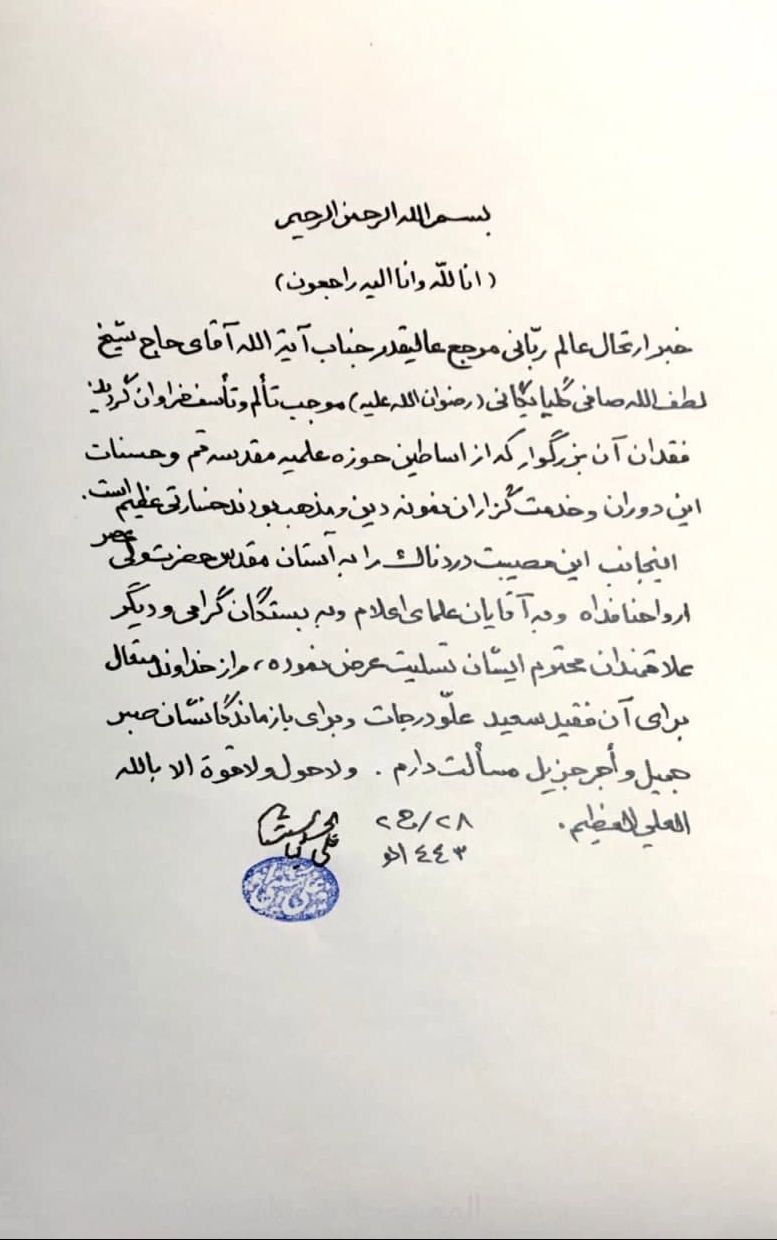 بسم الله الرحمن الرحیم
(انا للّه وانا الیه راجعون)
خبر ارتحال عالم ربّانی مرجع عالیقدر جناب آیة الله آقای حاج شیخ
لطف الله صافی گلپایگانی (رضوان الله علیه) موجب تألم وتأسف فراوان گردید
فقدان آن بزرگوار که از اساطین حوزه علمیه مقدسه قم و حسنات
این دوران وخدمت گزاران نمونه دین ومذهب بودند خسارتی عظیم است.
اینجانب این مصیبت دردناک را به آستان مقدس حضرت ولی عصر
ارواحنا فداه وبه آقایان علمای اعلام وبه بستگان گرامی ودیگر
علاقمندان محترم ایشان تسلیت عرض نموده، واز خداوند متعال
برای آن فقید سعید علوّ درجات وبرای بازماندگانشان صبر
جمیل وأجر جزیل مسألت دارم. ولاحول ولاقوة الا بالله
العلي العظيم. ٢٨/ج٢ علي الحسيني السيستاني
١٤٤٣هـ